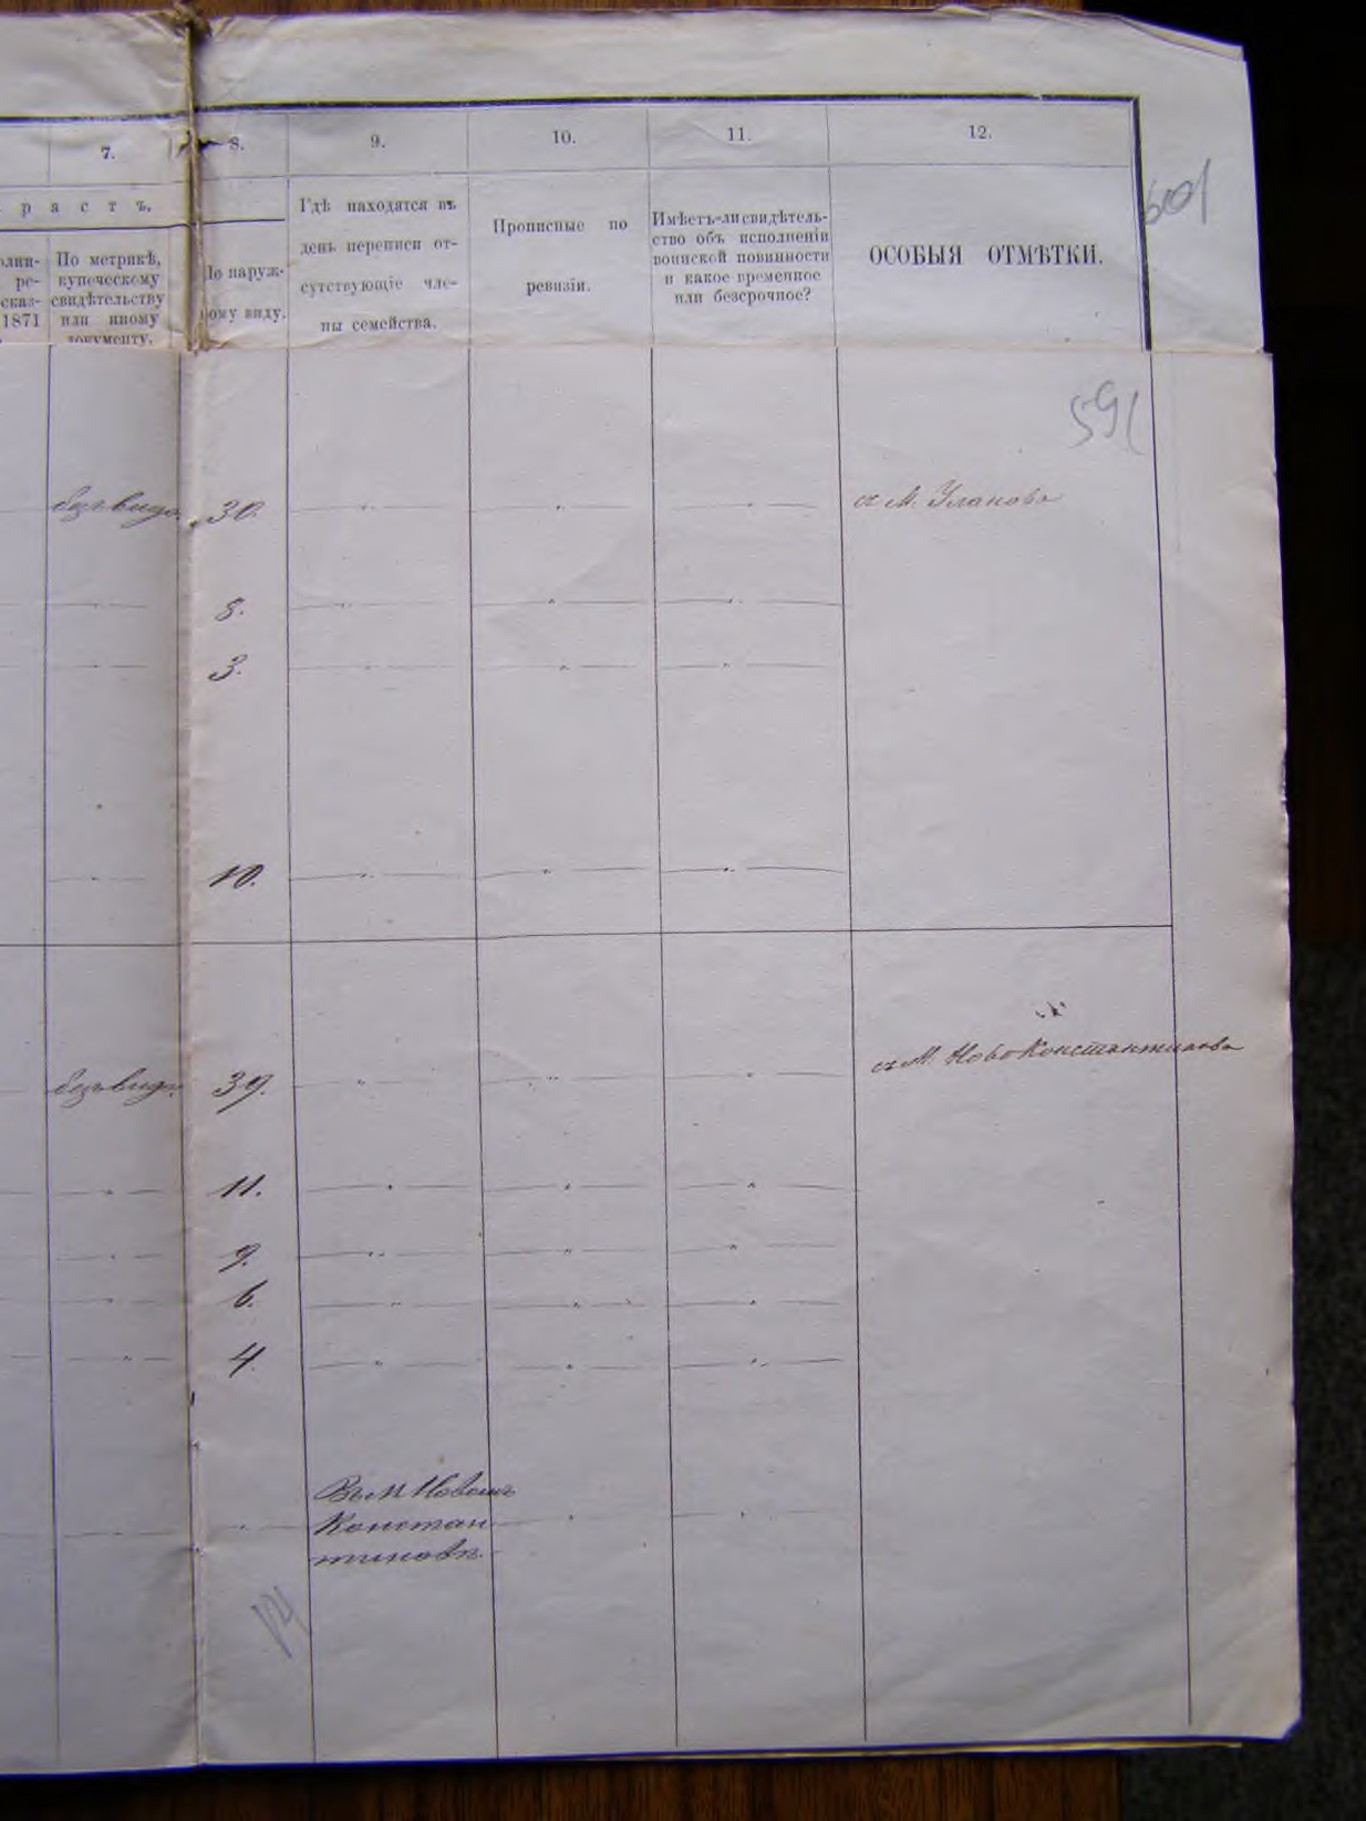 7. 8. 9. 10. 11. 12.
601
р а с т ъ.
По метрикѣ,
купеческому
свидѣтельству
или иному
документу.
ре-
сказ-
1871
По наруж-
ному виду.
Гдѣ находятся въ
день переписи от-
сутствующіе чле-
ны семейства.
Прописные по
ревизіи.
Имѣетъ-ли свидѣтель-
ство объ исполненіи
воинской повинности
и какое временное
или безсрочное?
ОСОБЫЯ ОТМѢТКИ.
591
безъ вида. 30. съ М. Уланова
8.
3.
10.
безъ вида. 39. съ М. Ново Константинова
11.
9.
6.
4.
Въ М Новомъ
Констан
тиновѣ.